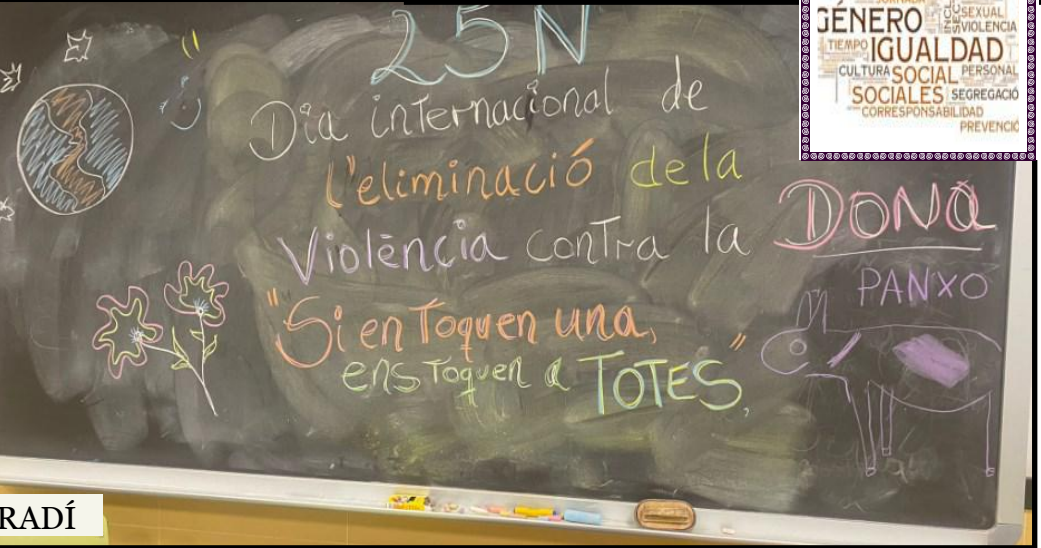 25N
Dia internacional de
l'eliminació de la
Violència contra la DONA
PANXO
"Si en Toquen una,
ens Toquen a TOTES"
GÉNERO
SEXUAL
VIOLENCIA
TIEMPO IGUALDAD
CULTURA SOCIAL PERSONAL
SOCIALES SEGREGACIÓ
CORRESPONSABILIDAD
PREVENCIÓ
RADÍ